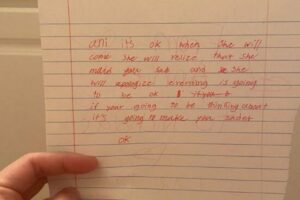 ani its ok when she will
come she will relize that she
maded you sad and she
will apologize everthing is going
to be ok
if your going to be thinking about
it's going to make you sader
ok